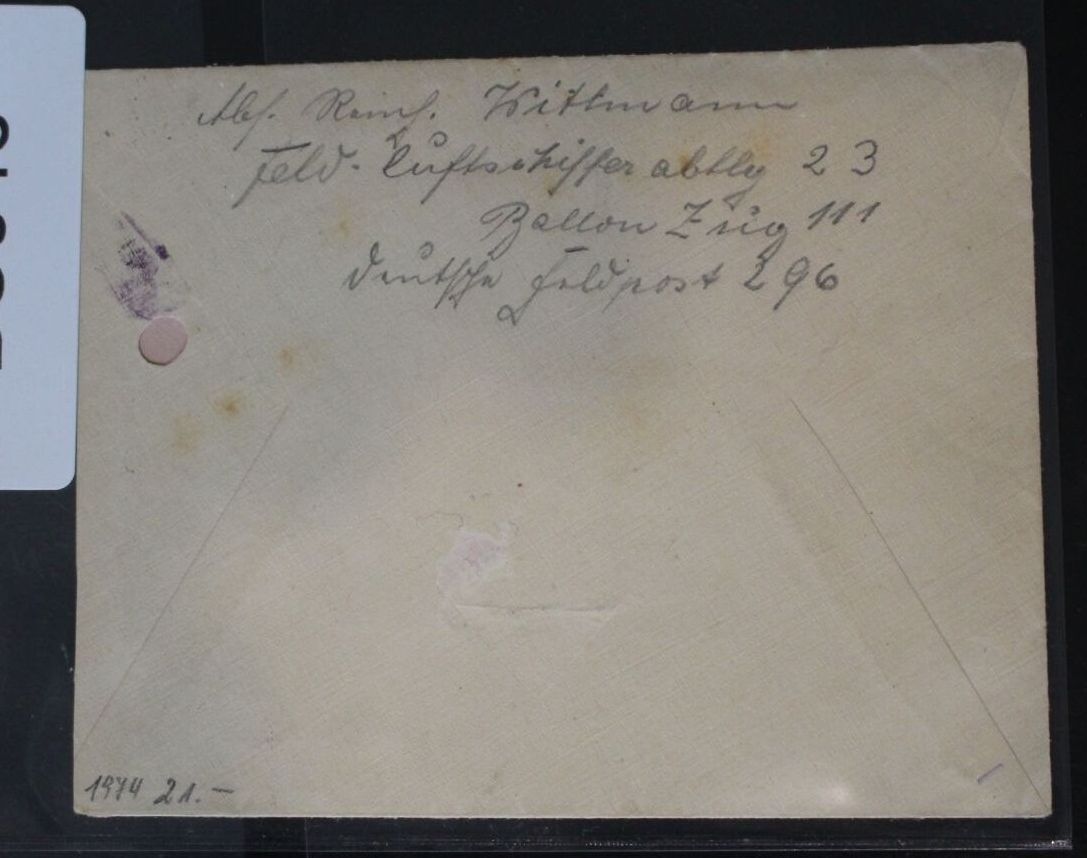 Abs. Reinh. Wittmann
Feld-Luftschifferabtlg 23
Ballon Zug 111
Deutsche Feldpost 296
1974 21.-